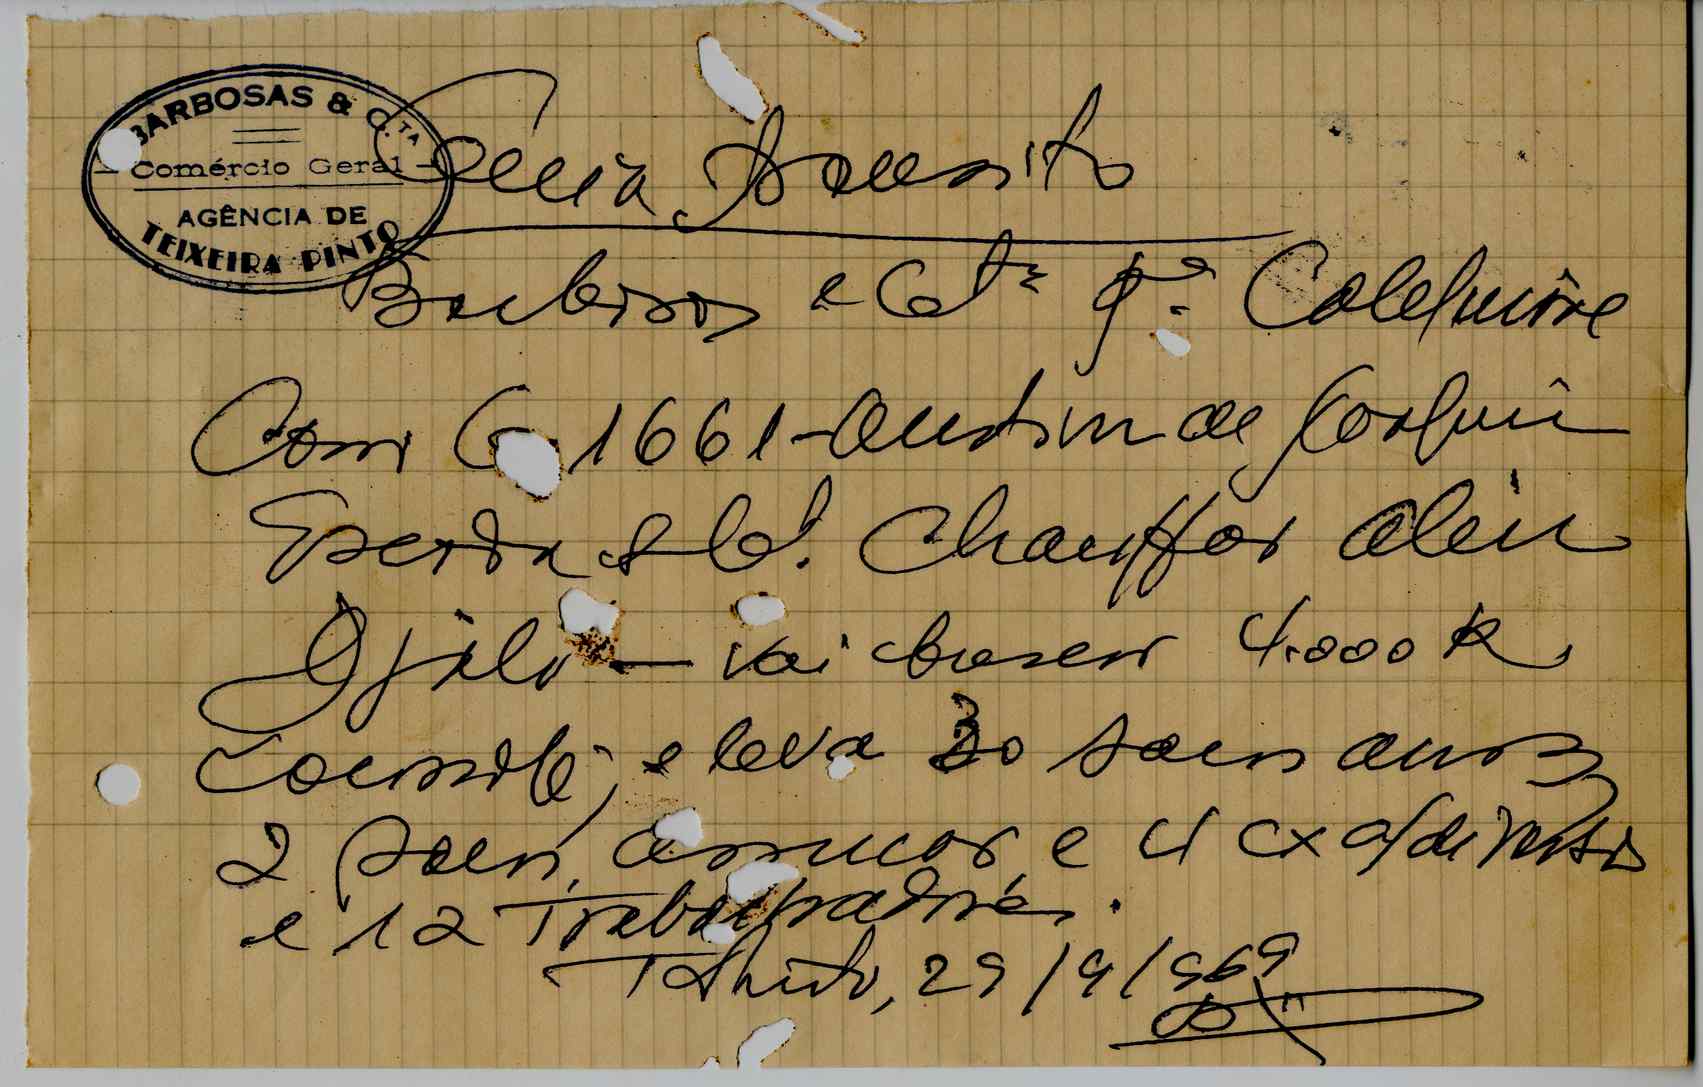 BARBOSAS & C.TA
Comércio Geral
AGÊNCIA DE
TEIXEIRA PINTO
Guia Transito
Barbosas e Ctª pª Calequisse
Com G 1661-Austin de Joaquim
& Cª. Chauffor
Djaló - vai buscar 4.000 K
e leva 30 sacos arroz
2 sacos assucar e 4 cx c/diversos
e 12 Trabalhadores.
T. Pinto, 29/9/969